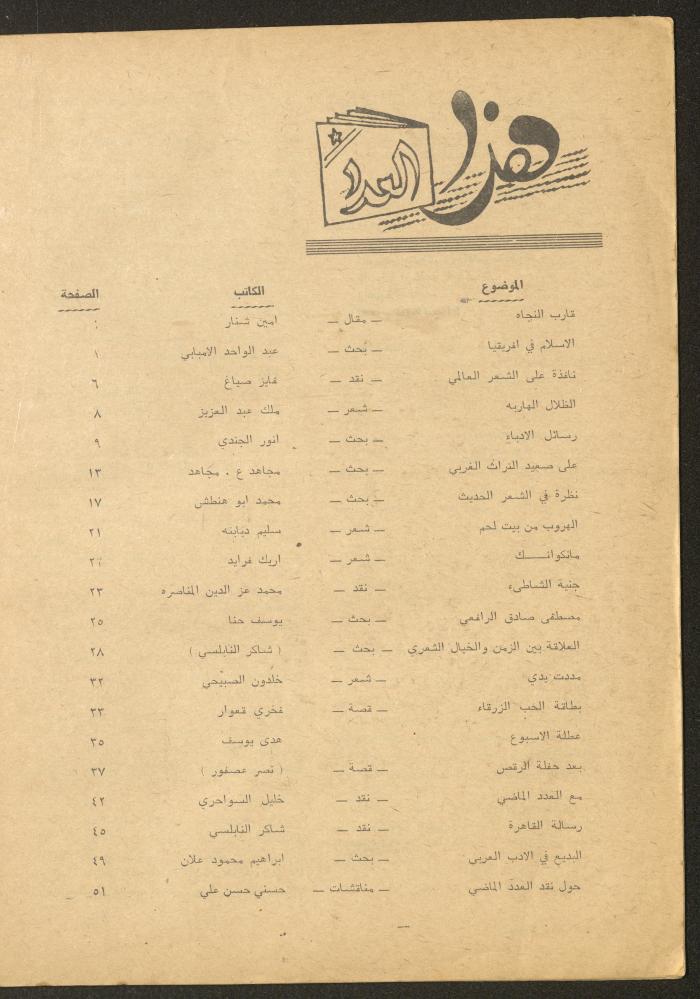 هذا العدد
الموضوع الكاتب الصفحة
قارب النجاه — مقال — امين شنار
الاسلام في افريقيا — بحث — عبد الواحد الامبابي ١
نافذة على الشعر العالمي — نقد — فايز صياغ ٦
الظلال الهاربه — شعر — ملك عبد العزيز ٨
رسائل الادباء — بحث — انور الجندي ٩
على صعيد التراث الغربي — بحث — مجاهد ع . مجاهد ١٣
نظرة في الشعر الحديث — بحث — محمد ابو هنطش ١٧
الهروب من بيت لحم — شعر — سليم دبابنه ٢١
مانكوانـــك — شعر — اريك فرايد
جنية الشاطىء — نقد — محمد عز الدين المناصره ٢٣
مصطفى صادق الرافعي — بحث — يوسف حنا ٢٥
العلاقة بين الزمن والخيال الشعري — بحث — ( شاكر النابلسي ) ٢٨
مددت يدي — شعر — خلدون الصبيحي ٣٢
بطاقة الحب الزرقاء — قصة — فخري قعوار ٣٣
عطلة الاسبوع هدى يوسف ٣٥
بعد حفلة الرقص — قصة — ( نصر عصفور ) ٣٧
مع العدد الماضي — نقد — خليل السواحري ٤٢
رسالة القاهرة — نقد — شاكر النابلسي ٤٥
البديع في الادب العربي — بحث — ابراهيم محمود علان ٤٩
حول نقد العدد الماضي — مناقشات — حسني حسن علي ٥١